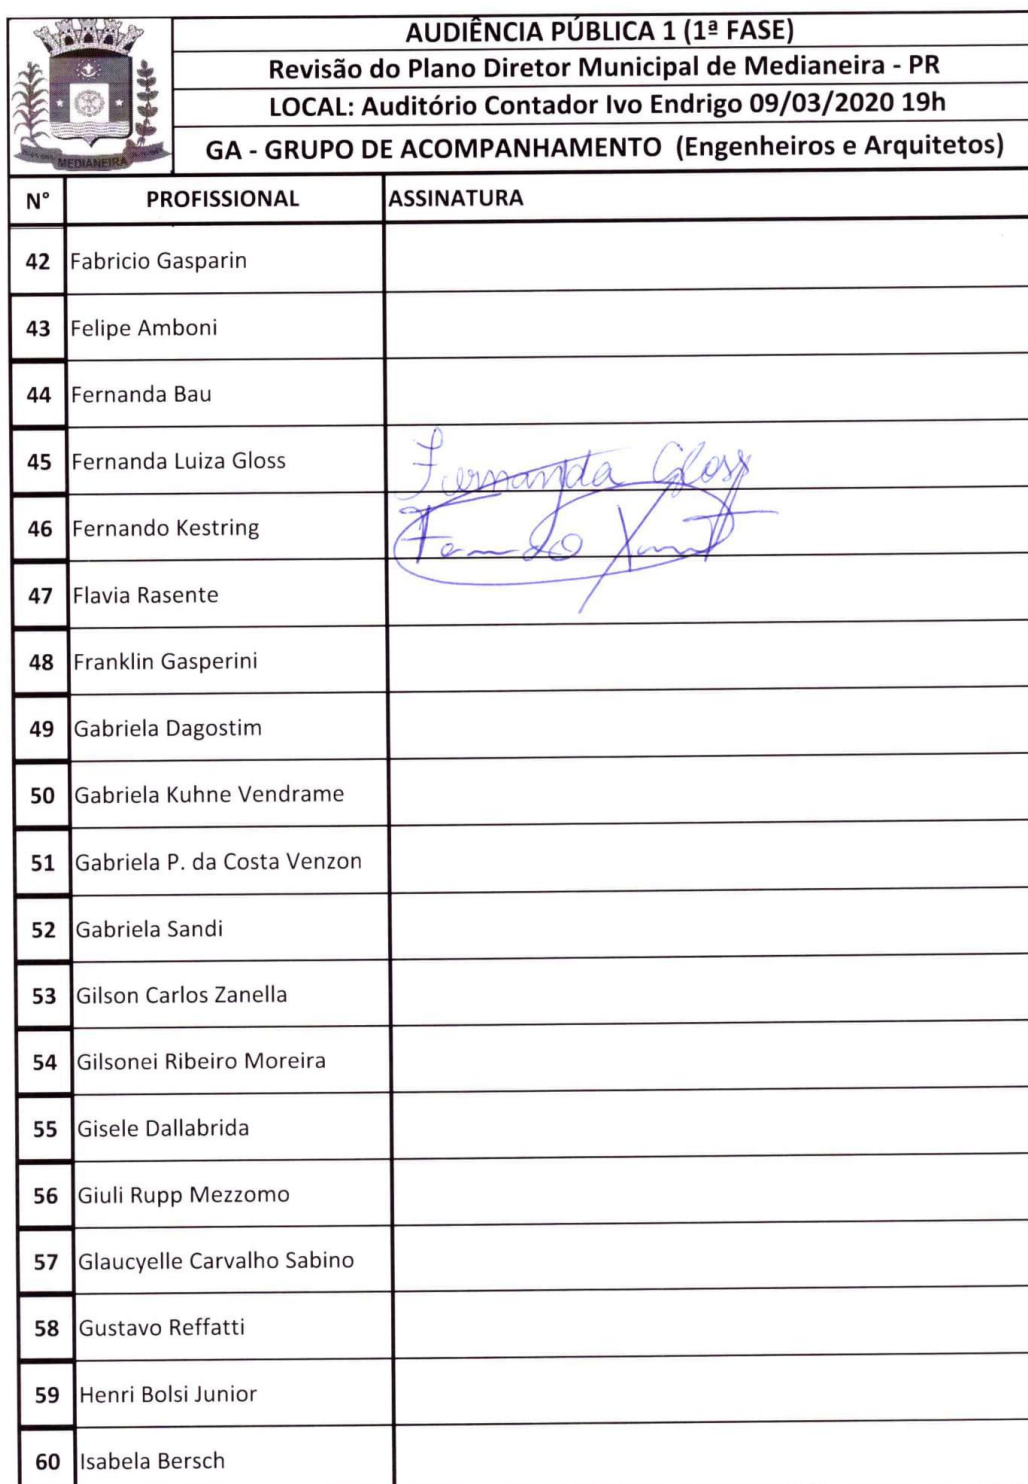 AUDIÊNCIA PÚBLICA 1 (1ª FASE)
Revisão do Plano Diretor Municipal de Medianeira - PR
LOCAL: Auditório Contador Ivo Endrigo 09/03/2020 19h
GA - GRUPO DE ACOMPANHAMENTO (Engenheiros e Arquitetos)
MEDIANEIRA
N° PROFISSIONAL ASSINATURA
42 Fabricio Gasparin
43 Felipe Amboni
44 Fernanda Bau
45 Fernanda Luiza Gloss Fernanda Gloss
46 Fernando Kestring
47 Flavia Rasente
48 Franklin Gasperini
49 Gabriela Dagostim
50 Gabriela Kuhne Vendrame
51 Gabriela P. da Costa Venzon
52 Gabriela Sandi
53 Gilson Carlos Zanella
54 Gilsonei Ribeiro Moreira
55 Gisele Dallabrida
56 Giuli Rupp Mezzomo
57 Glaucyelle Carvalho Sabino
58 Gustavo Reffatti
59 Henri Bolsi Junior
60 Isabela Bersch